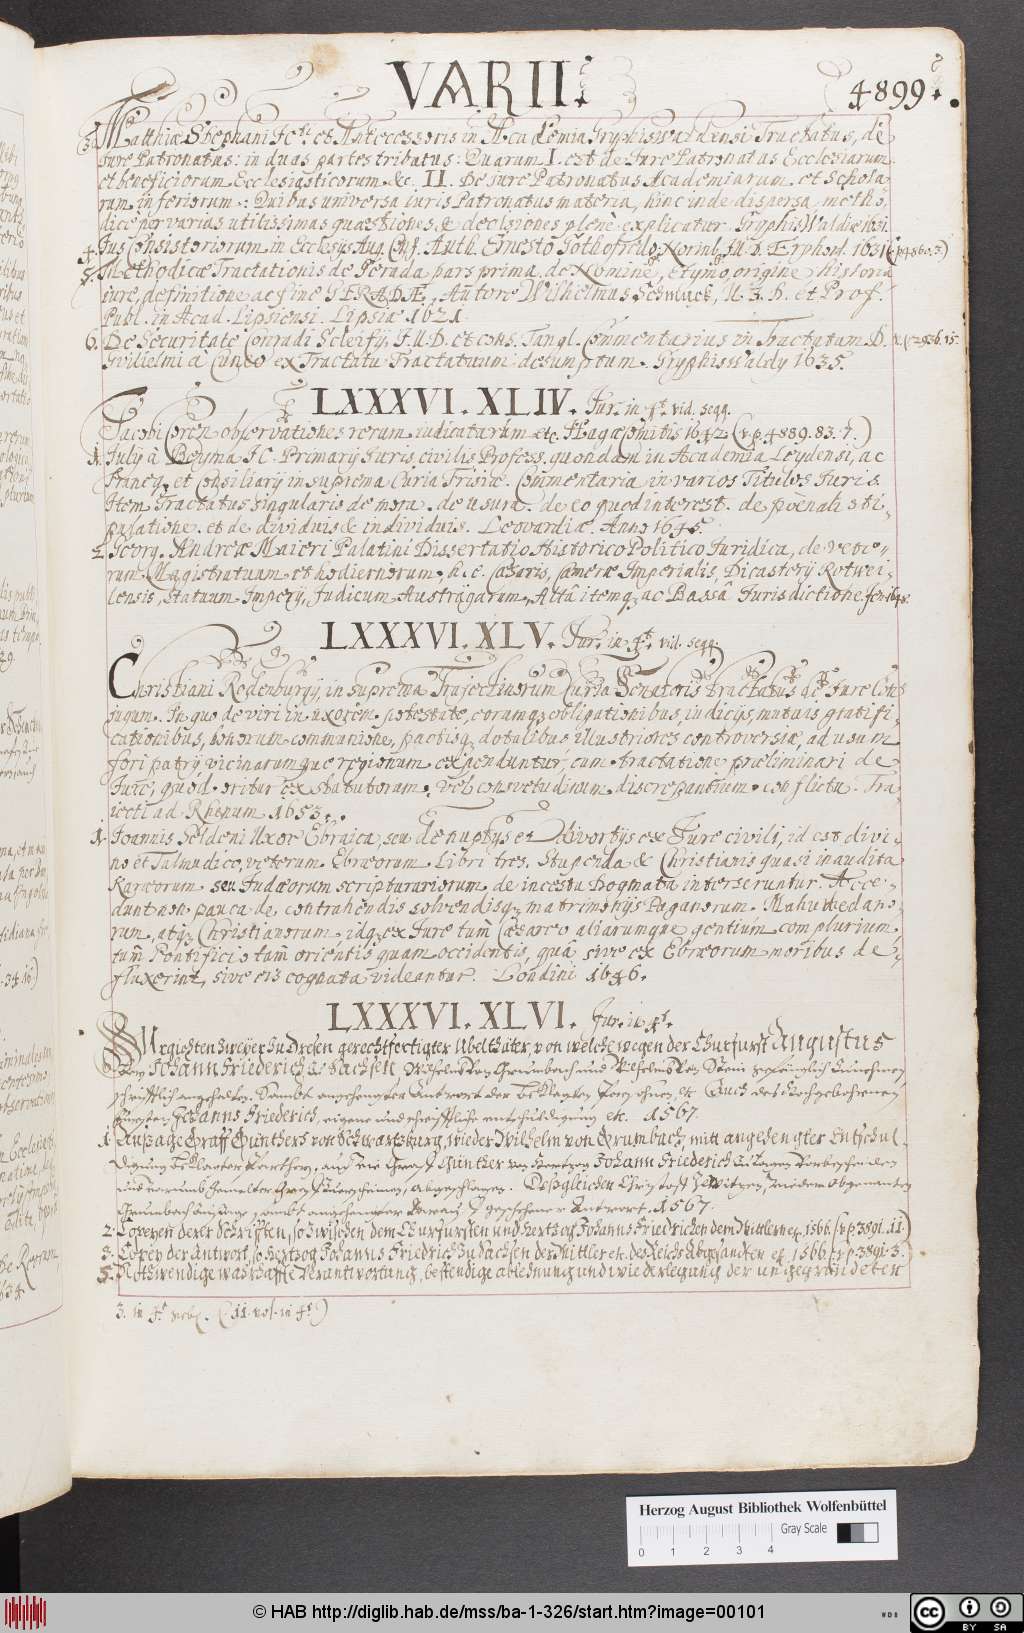 VARII.
4899.
3. Matthiæ Stephani JCti. et Antecessoris in Academia Gryphiswaldensi Tractatus, de
Jure Patronatus: in duas partes tributus: Quarum I. est de Jure Patronatus Ecclesiarum
et beneficiorum Ecclesiasticorum &c. II. De jure Patronatus Academiarum et Schola-
rum inferiorum: Quibus universa iuris Patronatus materia, hinc inde dispersa, metho-
dicè per varias utilissimas quæstiones, & decisiones plenè explicatur. GryphisWaldiæ ibi.
4. Jus Consistoriorum in Ecclesys Aug. Conf. Auth. Ernesto Gothofrido Norinb. J.U.D. Erphord. 1631 (v. p. 4860. 2.)
5. Methodicæ Tractationis de Gerada pars prima. de Nomine, Etymo, origine historia
iure, definitione ac fine GERADÆ, Autore Wilhelmus Schmuck, U. J. D. et Prof.
Publ. in Acad. Lipsiensi. Lipsiæ 1621.
6. De Securitate Conradi Scleify J.U.D. et cons. Tangl. Commentarius in Tractatum D. v. p. 2936. 15.
Gvilielmi à Cuneo ex Tractatu Tractatuum desumptum. GryphisWaldy 1635.
LXXXVI. XLIV. Jur. in 4to. vid. seqq.
Jacobi Coren observationes rerum iudicatarum etc. Hagæ Comitis 1642 (v. p. 4889. 83. 7.)
1. July à Beyma JC. Primarij Juris civilis Profess. quondam in Academia Leydensi, ac
Franeq. et Consiliary in suprema Curia Frisiæ. Commentaria in varios Titulos Juris.
Item Tractatus singularis de mora. de usura. de eo quod interest. de pœnali sti-
pulatione. et de dividuis & individuis. Leovardiæ. Anno 1645.
2. Georg. Andreæ Maieri Palatini Dissertatio Historico Politico Juridica, de vete-
rum Magistratuum et hodiernorum, h. e. Cæsaris, Cameræ Imperialis, Dicastery Rotwei-
lensis, Statuum Impery, Judicum Austrægarum, Altâ itemq ac Bassâ Jurisdictione. Jen. 1648.
LXXXVI. XLV. Jur. in 4to. vid. seqq.
Christiani Rodenburgij, in suprema Trajectinorum Curia Senatoris tractatus de Jure Con-
jugum. In quo de viri in uxorem potestate, eorumq obligationibus, indicijs, mutuis gratifi-
cationibus, bonorum communione, pactisq dotalibus illustriores controversiæ, ad usum
fori patrij vicinarumque regionum expenduntur, cum tractatione præliminari de
Jure, quod oritur ex statutorum vel consvetudinum discrepantium conflictu. Tra-
iecti ad Rhenum 1653.
1. Joannis Seldeni Uxor Ebraica, seu de nuptijs et divortijs ex Jure civili, id est divi-
no et Talmudico, veterum Ebræorum Libri tres. Stupenda & Christianis quasi inaudita
Karæorum seu Judæorum scripturariorum de incestu Dogmata interseruntur. Acce-
dunt non pauca de contrahendis solvendisq matrimonijs Paganorum. Mahumedano-
rum, atq Christianorum, idq ex Jure tum Cæsareo aliarumque gentium complurium,
tum Pontificio tam orientis quam occidentis, quâ sive ex Ebræorum moribus de-
fluxerint, sive eis cognata videantur. Londini 1646.
LXXXVI. XLVI. Jur. in 4to.
Urgichten zweyer zu Dresen gerechtfertigter Ubelthäter, von welche wegen der Churfurst Augustus
den Johann Friederich zu Sachsen Wilhelm von Grumbach und Wilhelm von Stein gefenglich
schrifftlich angehalten. Sambt angehengter Antwort der beklagten etc. Auch des Hochgebohrnen
Fürsten Johanns Friederich, eigene und ehrhafftste entschuldigung etc. 1567.
1. Außage Graff Gunthers von Schwartzburg, wieder Wilhelm von Grumbach, mitt angehengter Entschul-
digung beklagter Parthey, auf die Graff Günther von Hertzog Johann Friederich
. Desgleichen Christoff Zedwitzen,
Grumbach Antwort. 1567.
2. Copeyen derer Schrifften, so zwischen dem Churfursten und Hertzog Johanns Friedrichen dem Mittlern etc. 1566. (v. p. 3891. 11.)
3. Copey der Antwort, so Hertzog Johanns Friedrich zu Sachsen der Mittler etc. des Reichs Abgesandten etc. 1566 (v. p. 3891. 3.)
5. Nothwendige warhaffte verantwortung, bestendige ablehnung und wiederlegung der ungegründeten
3. in 4to (11. vol. in 4to)
Herzog August Bibliothek Wolfenbüttel
Gray Scale
0 1 2 3 4
© HAB http://diglib.hab.de/mss/ba-1-326/start.htm?image=00101
cc BY SA